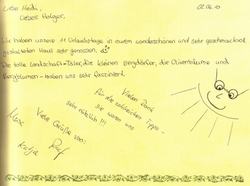 Liebe Heidi,
Lieber Holger,
02.06.10
wir haben unsere 11 Urlaubstage in eurem wunderschönen und sehr geschmackvoll
gestalteten Haus sehr genossen.
Die tolle Landschaft, die kleinen Bergdörfer, die Olivenbäume und
haben uns sehr fasziniert.
Vielen Dank
Für die zahlreichen Tipps -
sie waren uns
sehr nützlich !!!
Viele Grüße von:
Katja